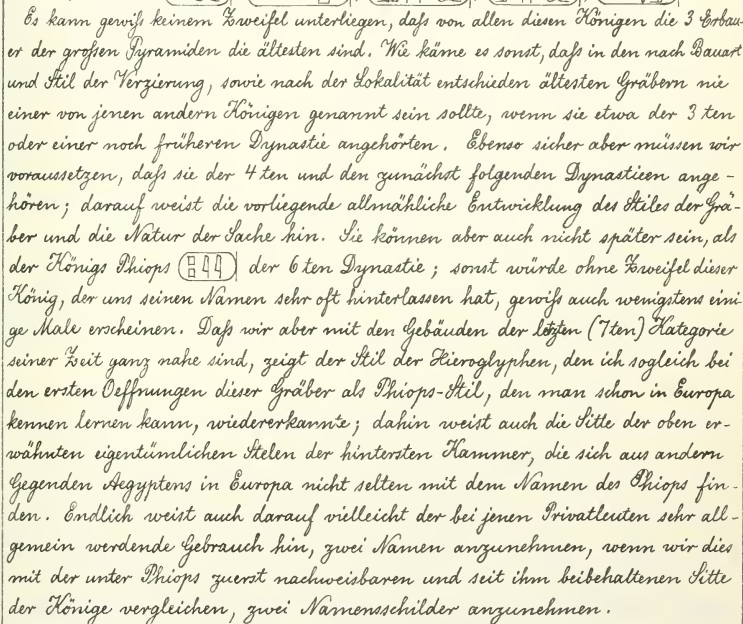 Es kann gewiß keinem Zweifel unterliegen, daß von allen diesen Königen die 3 Erbau-
er der großen Pyramiden die ältesten sind. Wie käme es sonst, daß in den nach Bauart
und Stil der Verzierung, sowie nach der Lokalität entschieden ältesten Gräbern nie
einer von jenen andern Königen genannt sein sollte, wenn sie etwa der 3 ten
oder einer noch früheren Dynastie angehörten. Ebenso sicher aber müssen wir
voraussetzen, daß sie der 4 ten und den zunächst folgenden Dynastieen ange-
hören; darauf weist die vorliegende allmähliche Entwicklung des Stiles der Grä-
ber und die Natur der Sache hin. Sie können aber auch nicht später sein, als
der Königs Phiops der 6 ten Dynastie; sonst würde ohne Zweifel dieser
König, der uns seinen Namen sehr oft hinterlassen hat, gewiß auch wenigstens eini
ge Male erscheinen. Daß wir aber mit den Gebäuden der letzten (7ten) Kategorie
seiner Zeit ganz nahe sind, zeigt der Stil der Hieroglyphen, den ich sogleich bei
den ersten Oeffnungen dieser Gräber als Phiops-Stil, den man schon in Europa
kennen lernen kann, wiedererkannte; dahin weist auch die Sitte der oben er-
wähnten eigentümlichen Stelen der hintersten Kammer, die sich aus andern
Gegenden Aegyptens in Europa nicht selten mit dem Namen des Phiops fin-
den. Endlich weist auch darauf vielleicht der bei jenen Privatleuten sehr all-
gemein werdende Gebrauch hin, zwei Namen anzunehmen, wenn wir dies
mit der unter Phiops zuerst nachweisbaren und seit ihm beibehaltenen Sitte
der Könige vergleichen, zwei Namensschilder anzunehmen.